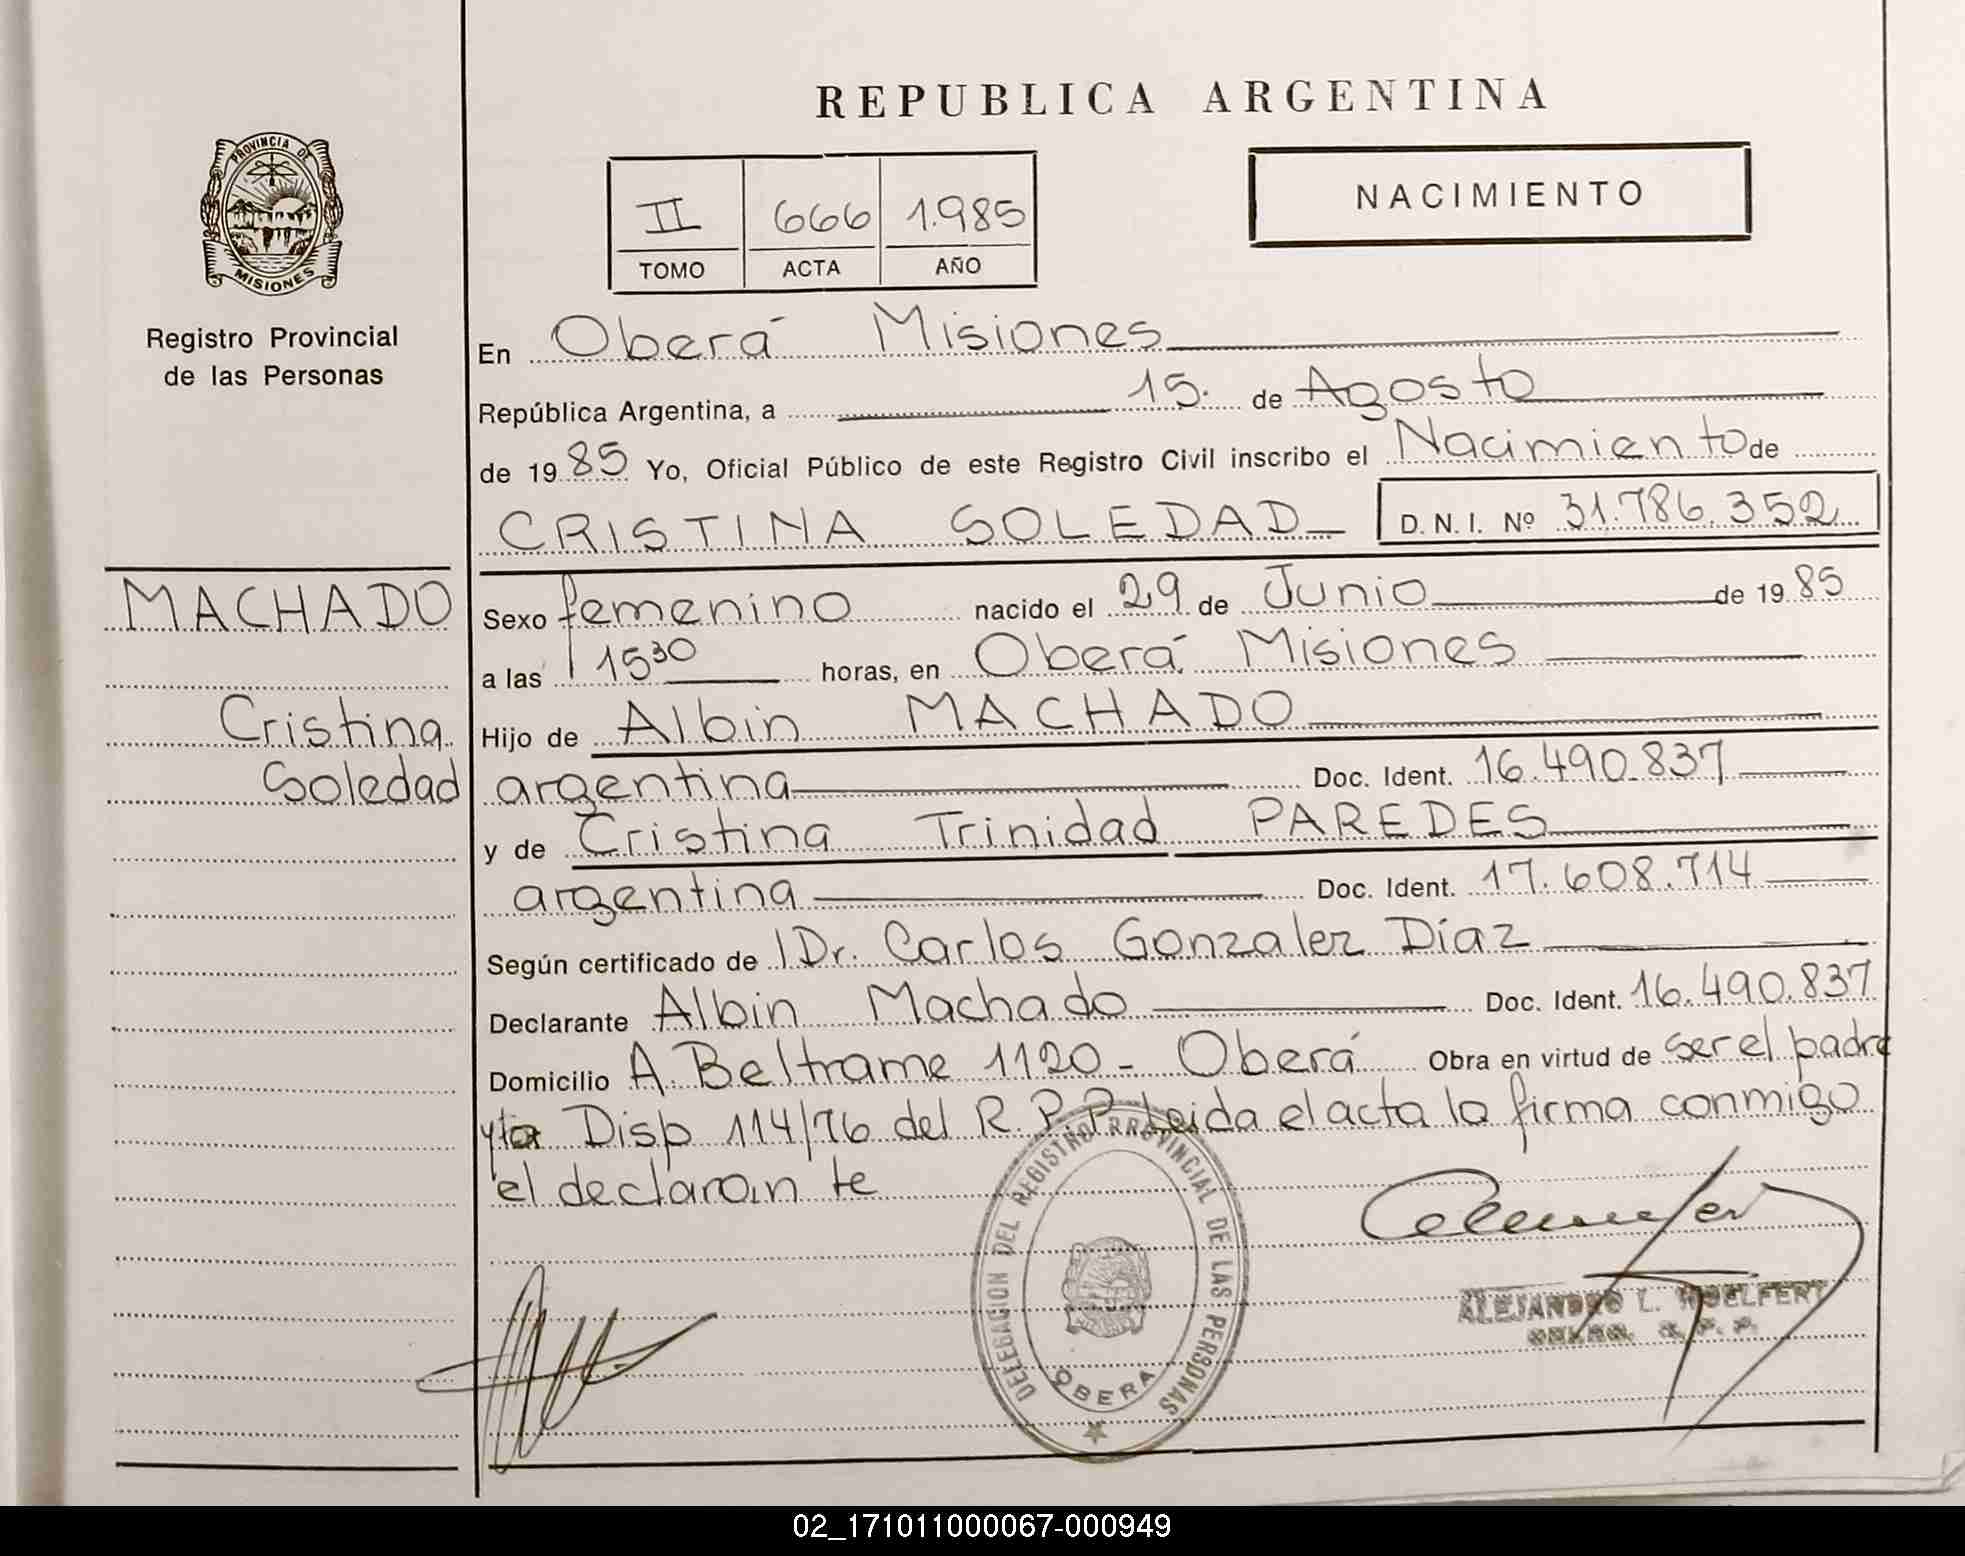 REPUBLICA ARGENTINA
PROVINCIA DE
MISIONES
Registro Provincial
de las Personas
II 666 1.985
TOMO ACTA AÑO
NACIMIENTO
En Oberá Misiones
República Argentina, a 15. de Agosto
de 19 85 Yo, Oficial Público de este Registro Civil inscribo el Nacimiento de
CRISTINA SOLEDAD D.N.I. Nº 31.786.352
MACHADO
Cristina
Soledad
Sexo femenino nacido el 29 de Junio de 19 85
a las 15 30 horas, en Oberá Misiones
Hijo de Albin MACHADO
argentina Doc. Ident. 16.490.837
y de Cristina Trinidad PAREDES
argentina Doc. Ident. 17.608.714
Según certificado de Dr. Carlos Gonzalez Díaz
Declarante Albin Machado Doc. Ident. 16.490.837
Domicilio A. Beltrame 1120 - Oberá Obra en virtud de ser el padre
Disp 114/76 del R.P.P. Leida el acta la firma conmigo
el declarante
DELEGACION DEL REGISTRO PROVINCIAL DE LAS PERSONAS
OBERA
ALEJANDRO L. WOELFERT
02_171011000067-000949